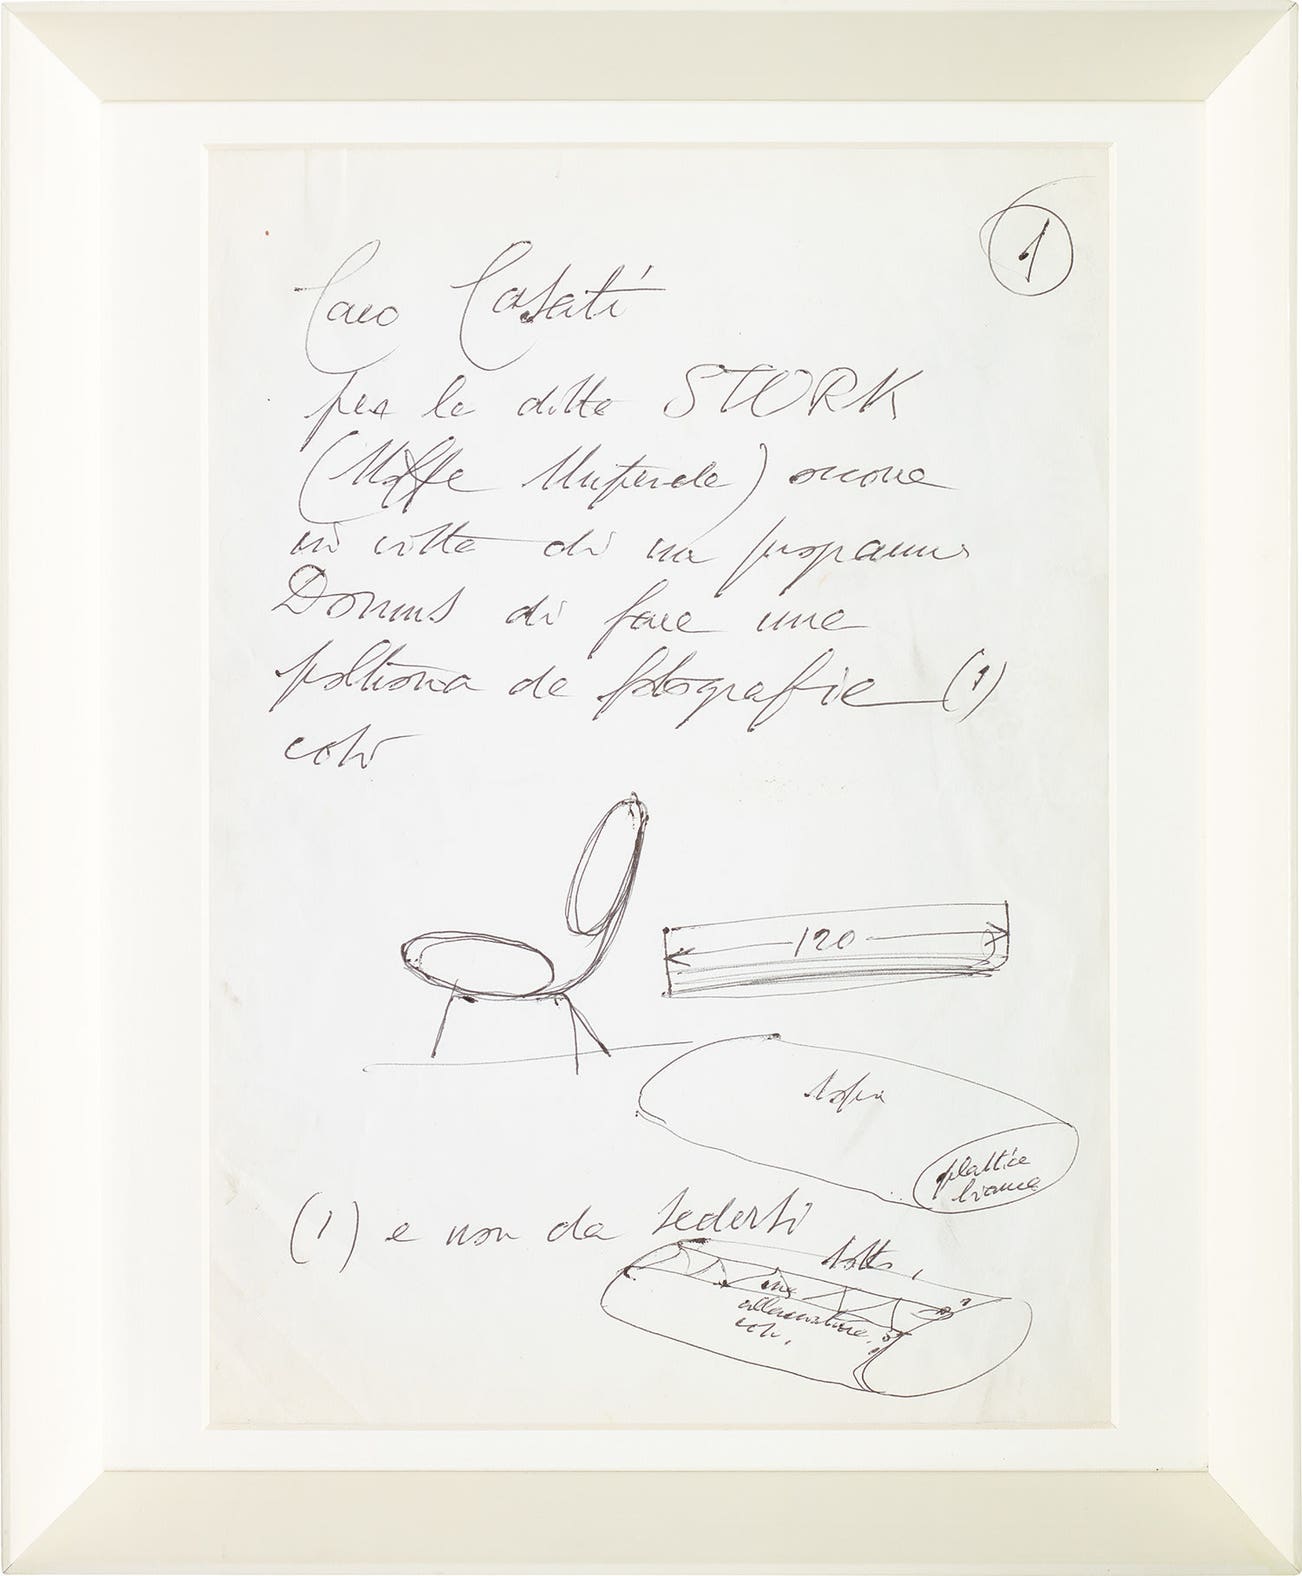 1
Caro Casati
per la ditta STORK
(Moffe Imperiale) occorre
in vista di un programma
Domus di fare una
poltrona da fotografie (1)
così
120
sopra
plastica
bianca
(1) e non da sedersi
sotto,
una
alternativa
così,